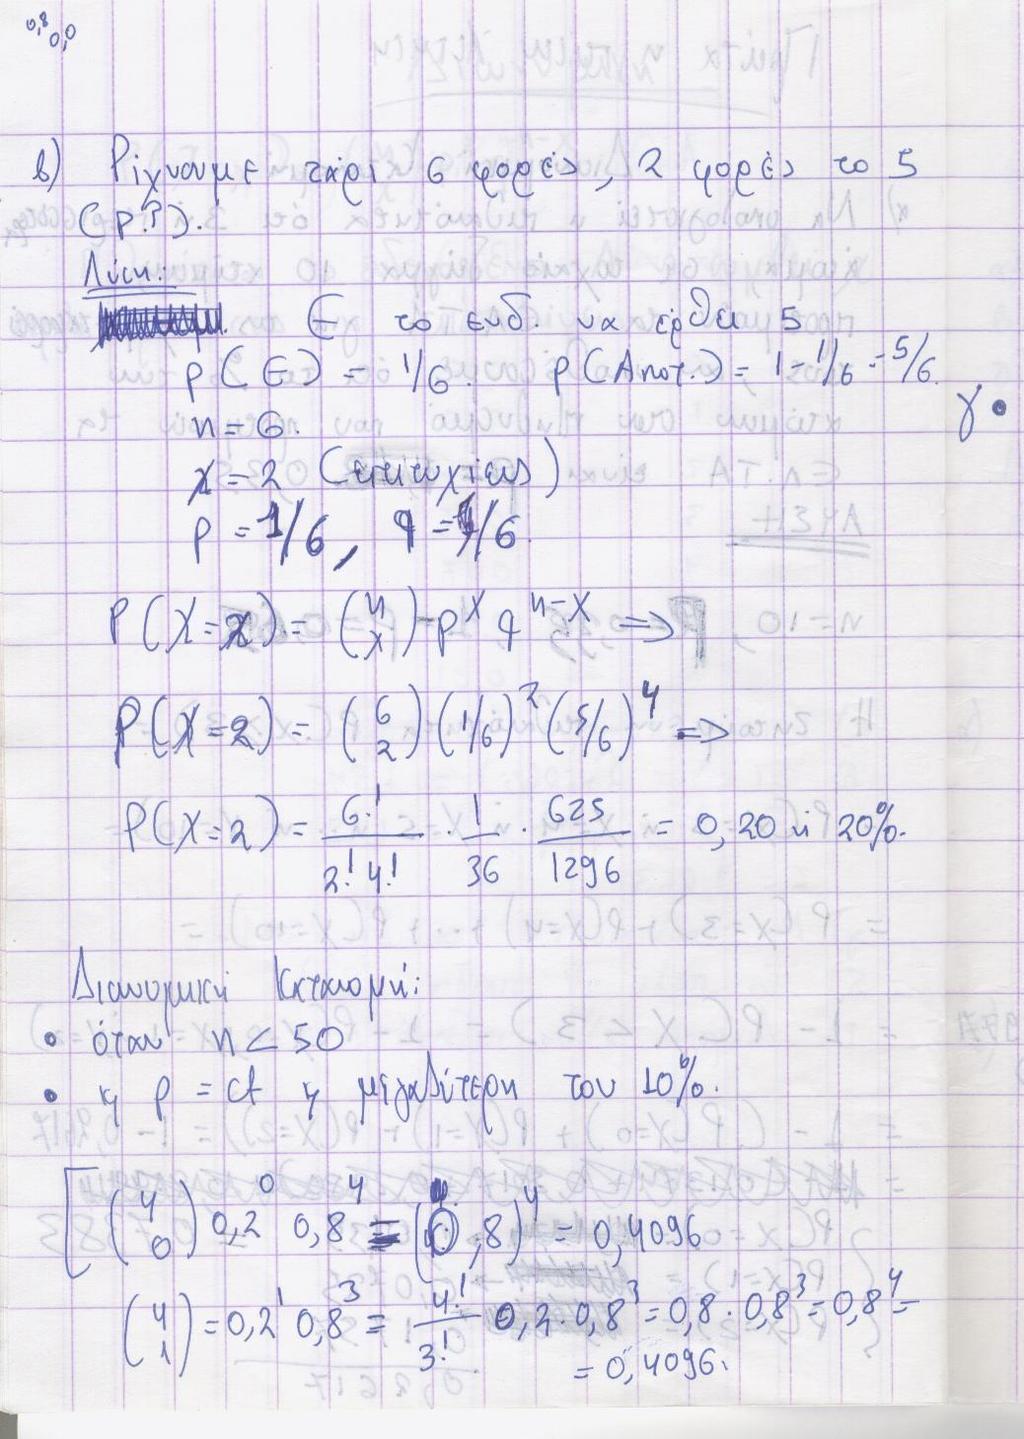 0,8 0,0
β) Ρίχνουμε ζάρι 6 φορές, 2 φορές το 5
(P?).
Λύση:
Ε το ενδ. να έρθει 5
P(Ε) = 1/6. P(Αποτ.) = 1 - 1/6 = 5/6.
γ •
n = 6.
x = 2 (επιτυχίες)
P = 1/6, q = /6.
P(X=x) = (n x) · p^x q^{n-x} =>
P(X=2) = (6 2) (1/6)^2 (5/6)^4 =>
P(X=2) = 6!/2!4! · 1/36 · 625/1296 = 0,20 ή 20%.
Διωνυμική Κατανομή:
• όταν n < 50
• ϗ p = ct ϗ μεγαλύτερη του 10%.
[(4 0) 0,2^0 0,8^4 = (0,8)^4 = 0,4096
(4 1) = 0,2^1 0,8^3 = 4!/3! 0,2 · 0,8^3 = 0,8 · 0,8^3 = 0,8^4 =
= 0,4096.